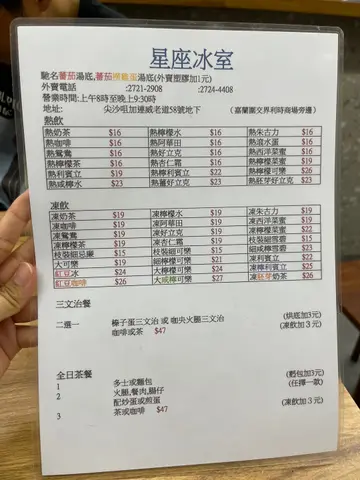 星座冰室
馳名蕃茄湯底,蕃茄滑雞蛋湯底(外賣塑膠加1元)
外賣電話 :2721-2908 :2724-4408
營業時間:上午8時至晚上9:30時
地址: 尖沙咀加連威老道58號地下 (嘉蘭圍交界利時商場旁邊)
熱飲
熱奶茶 $16 熱檸檬水 $16 熱朱古力 $16
熱咖啡 $16 熱阿華田 $16 熱滾水蛋 $16
熱鴛鴦 $16 熱好立克 $16 熱西洋菜蜜 $16
熱檸檬茶 $16 熱杏仁霜 $16 熱檸檬菜蜜 $16
熱利賓立 $22 熱檸利賓立 $22 熱檸檬可樂 $26
熱咸檸水 $23 熱薑好立克 $23 熱胚芽好立克 $23
凍飲
凍奶茶 $19 凍檸檬水 $19 凍朱古力 $19
凍咖啡 $19 凍阿華田 $19 凍西洋菜蜜 $19
凍鴛鴦 $19 凍好立克 $19 凍檸檬菜蜜 $22
凍檸檬茶 $19 凍杏仁霜 $19 枝裝細雪碧 $15
枝裝細忌廉 $15 枝裝細可樂 $15 細咸檸雪碧 $23
大可樂 $19 細檸檬可樂 $21 凍利賓立 $22
紅豆冰 $24 大檸檬可樂 $24 凍檸利賓立 $25
紅豆咖啡 $26 大咸檸可樂 $27 凍胚芽奶茶 $26
三文治餐
二選一 榛子蛋三文治 或 咖央火腿三文治 (烘底加3元)
咖啡或茶 $47 (凍飲加3元)
全日茶餐 (麭包加3元)
1 多士或麵包 (任擇一款)
2 火腿,餐肉,腸仔
配炒蛋或煎蛋 (凍飲加3元)
3 茶或咖啡 $47